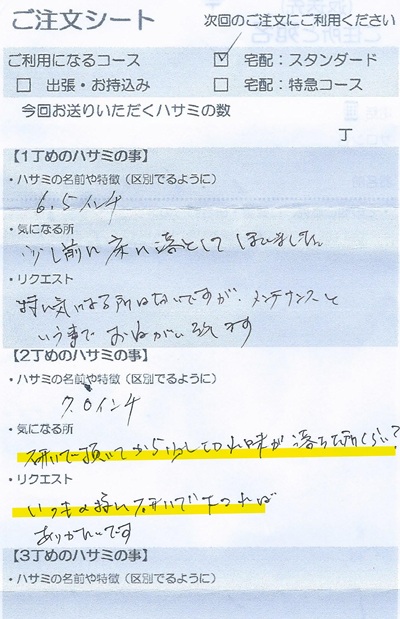 ご注文シート
次回のご注文にご利用ください
ご利用になるコース
☑ 宅配:スタンダード
□ 出張・お持込み
□ 宅配:特急コース
今回お送りいただくハサミの数
丁
【1丁めのハサミの事】
・ハサミの名前や特徴(区別でるように)
6.5インチ
・気になる所
少し前に床に落として
・リクエスト
特に気になる所はないですが、メンテナンスと
いう事でおねがい致します
【2丁めのハサミの事】
・ハサミの名前や特徴(区別でるように)
7.0インチ
・気になる所
研いで頂いてから少し切れ味が落ちた所くらい?
・リクエスト
いつもの様に研いで
ありがたいです
【3丁めのハサミの事】
・ハサミの名前や特徴(区別でるように)